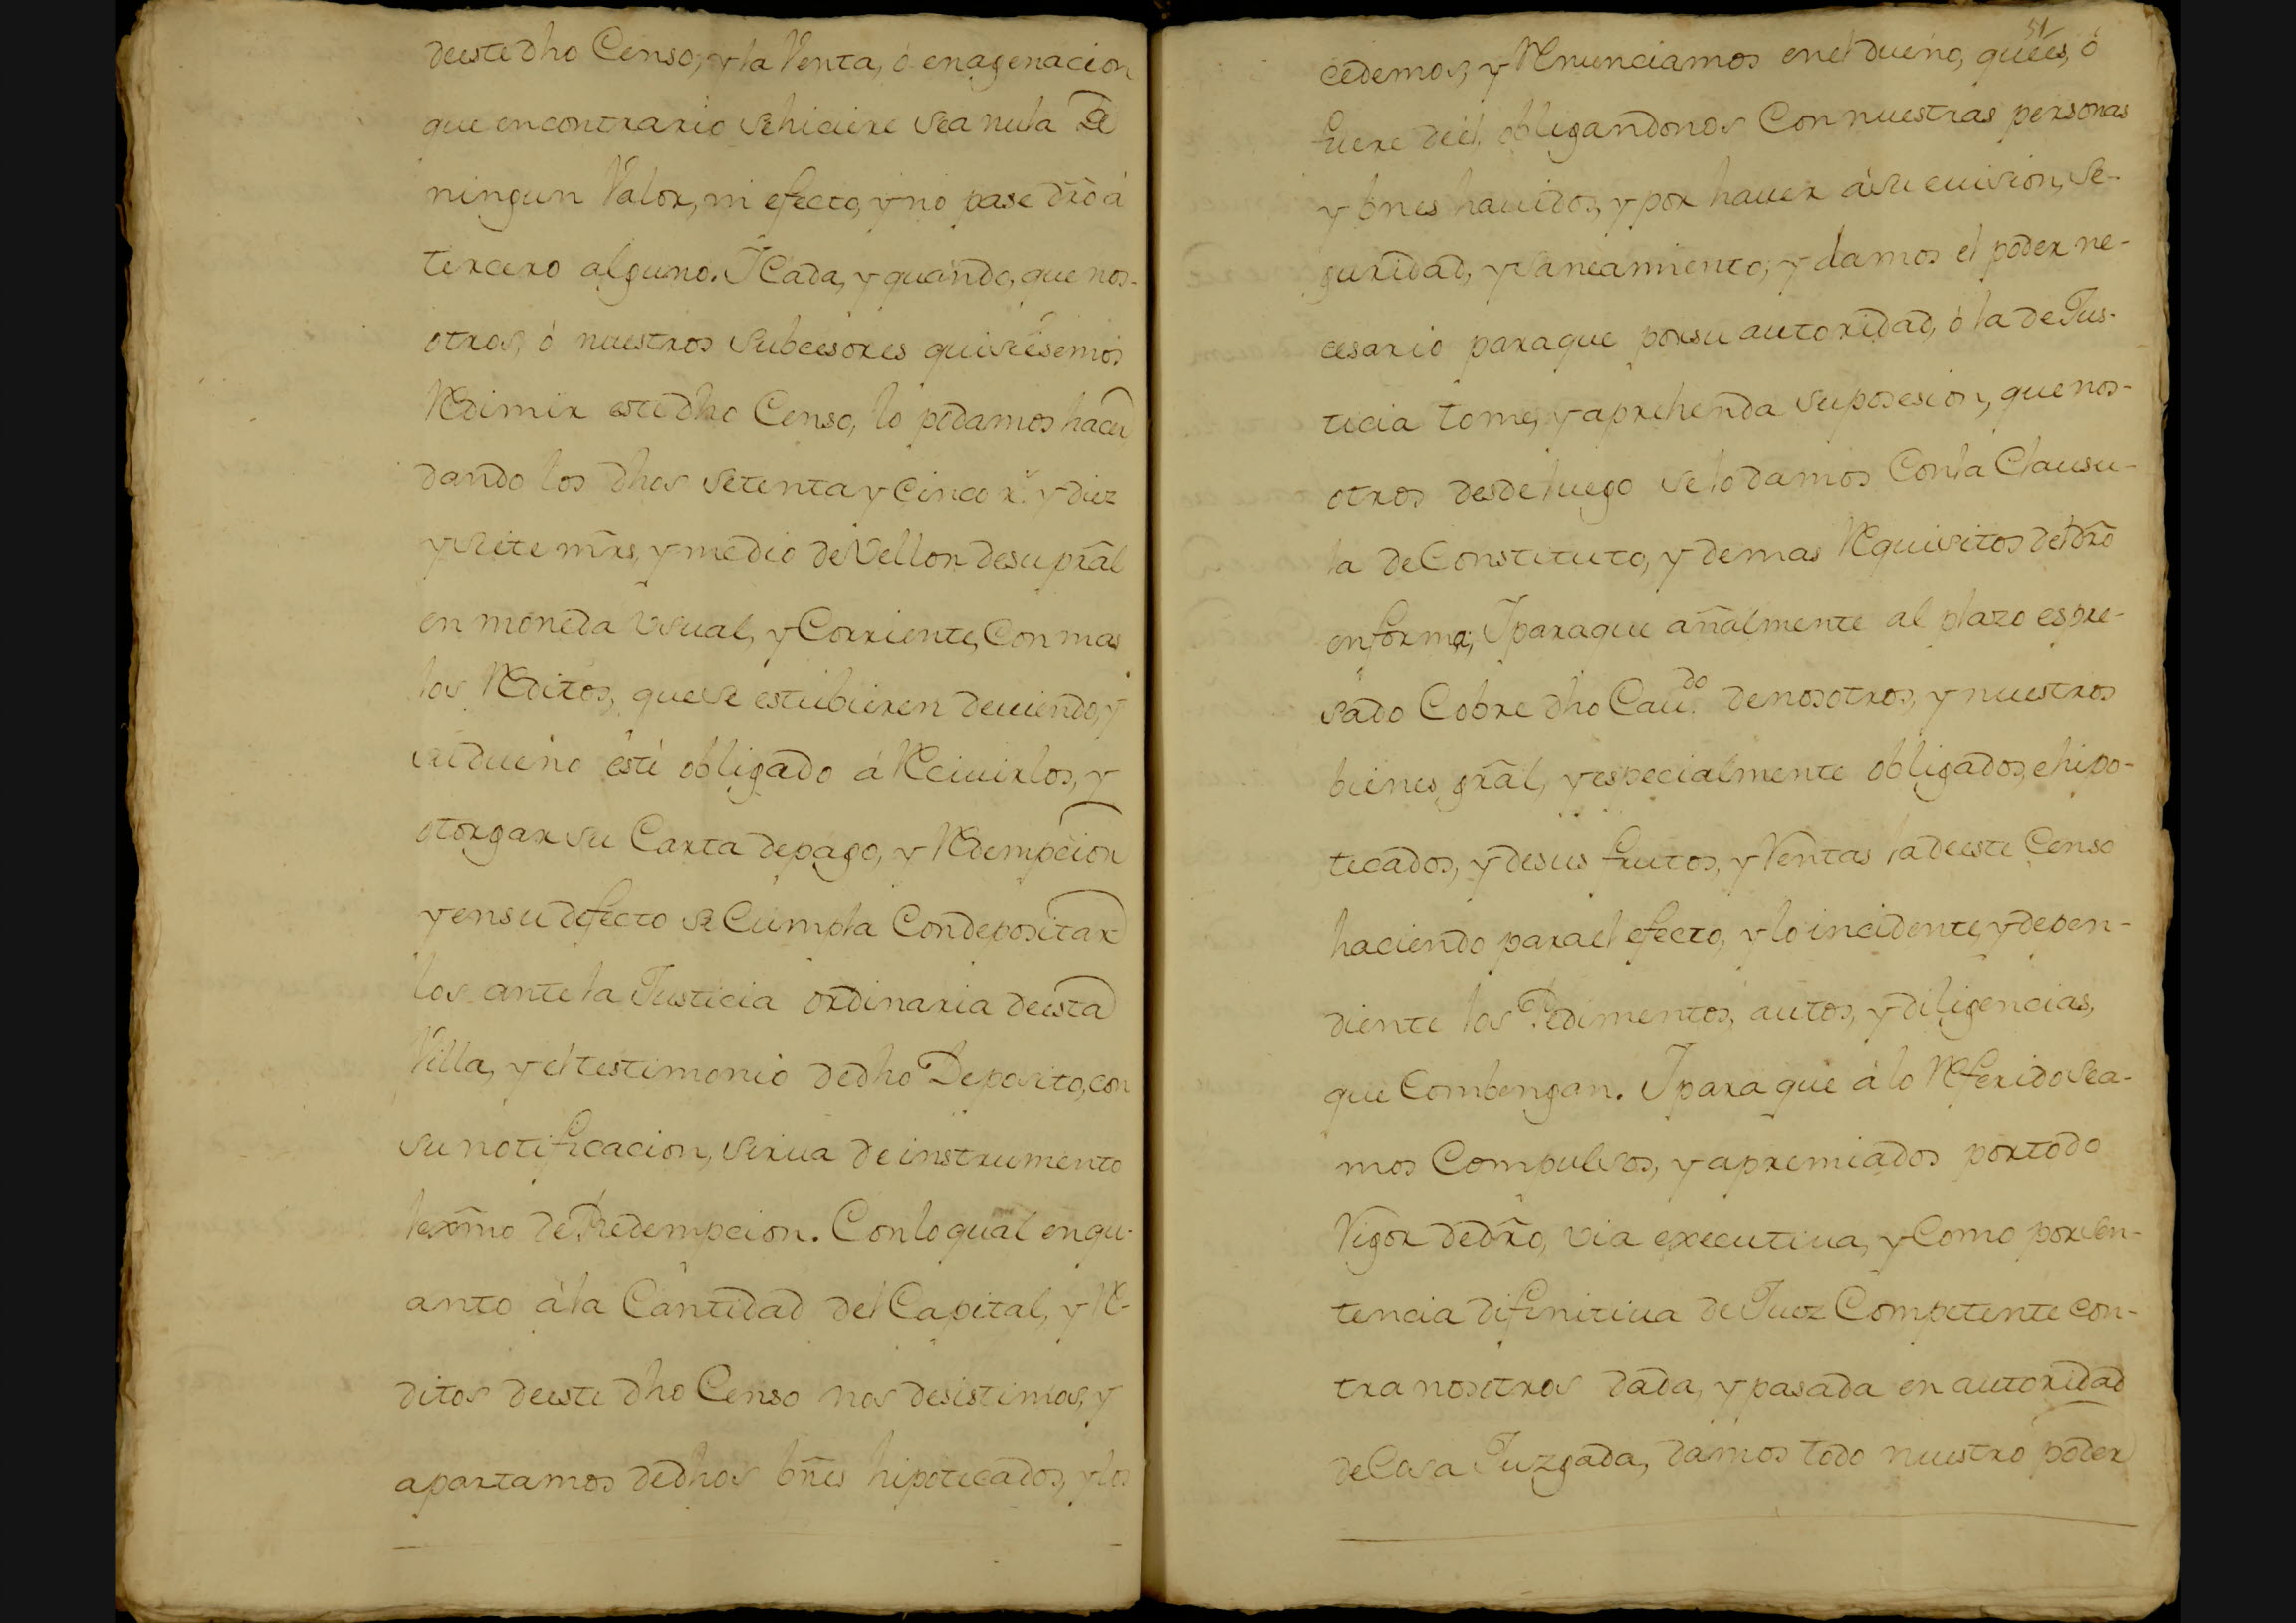 deeste dho Censo, y la Venta, ó enagenacion
que encontrario sehiciere sea nula De
ningun Valor, ni efecto, y no pase dr̃o á
tercero alguno. Y Cada, y quando, que nos-
otros, ó nuestros Subcesores quisiesemos
Redimir este dho Censo, lo podamos hacer
dando los dhos setenta y Cinco r.s y diez
y siete mr̃s, y medio de Vellon desu pral̃
en moneda Usual, y Corriente, Con mas
los Reditos, que se estubieren deuiendo, y
su dueño esté obligado á Reciuirlos, y
otorgar su Carta depago, y Redempcion
y ensu defecto se Cumpla Condepositar
los ante la Justicia ordinaria deesta
Villa, y el testimonio dedho Deposito, con
su notificacion, sirua de instrumento
lexm̃o de Redempcion. Conlo qual enqu-
anto á la Cantidad del Capital, y Re-
ditos deeste dho Censo nos desistimos, y
apartamos dedhos bñes hipotecados, y los
51
cedemos, y Renunciamos enel dueño, que es, ó
fuere deél. obligandonos Con nuestras personas
y bnes hauidos, y por hauer á su euision, se-
guridad, y saneamiento, y damos el poder ne-
cesario paraque porsu autoridad, ó la de Jus-
ticia tome, y aprehenda suposesion, que nos-
otros desdeluego se lo damos Conla Clausu-
la de Constituto, y demas Requisitos del dr̃o
enforma; Y paraque añalmente al plazo espre-
sado Cobre dho Cau.do denosotros, y nuestros
bienes gral̃, y especialmente obligados, e hipo-
tecados, y desus frutos, y Rentas la deeste Censo
haciendo para el efecto, y lo incidente, y depen-
diente los Pedimentos, autos, y diligencias,
que Combengan. Y para que á lo Referido sea-
mos Compulsos, y apremiados portodo
Vigor dedr̃o, via executiua, y Como por sen-
tencia difinitiua de Juez Competente con-
tra nosotros dada, y pasada en autoridad
deCosa Juzgada, damos todo nuestro poder